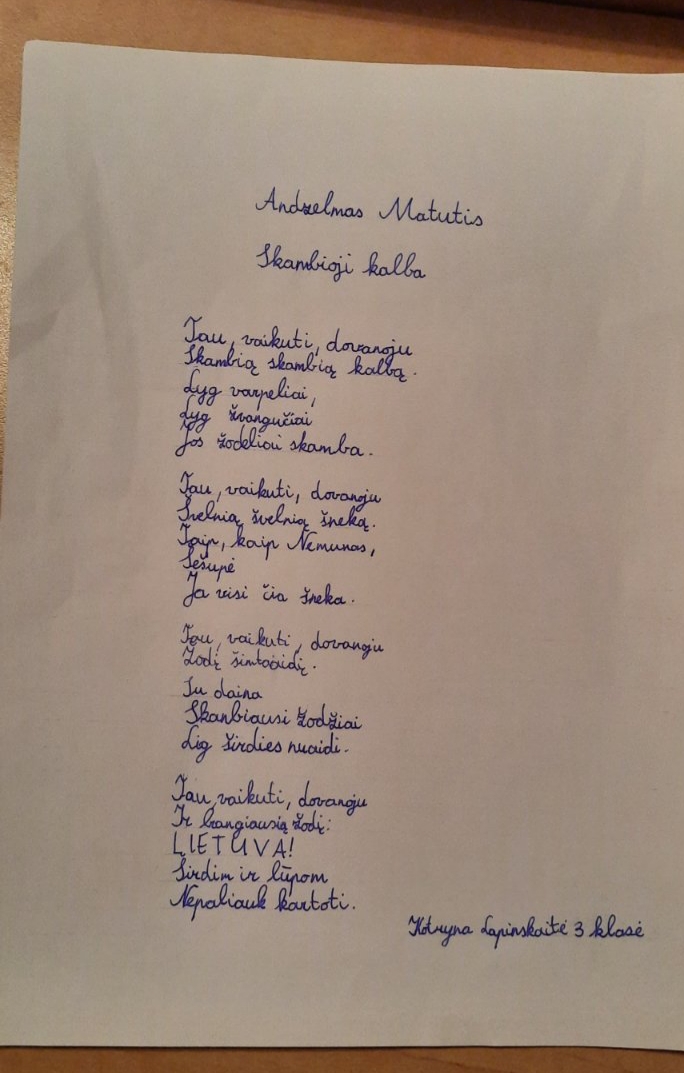 Andzelmas Matutis
Skambioji kalba
Tau, vaikuti, dovanoju
Skambią skambią kalbą.
Lyg varpeliai,
Lyg žvangučiai
Jos žodeliai skamba.
Tau, vaikuti, dovanoju
Švelnią švelnią šneką.
Taip, kaip Nemunas,
Šešupė
Ja visi čia šneka.
Tau, vaikuti, dovanoju
Žodį šimtaaidį.
Su daina
Skanbiausi žodžiai
Lig širdies nuaidi.
Tau, vaikuti, dovanoju
Ir brangiausią žodį:
LIETUVA!
Širdim ir lūpom
Nepaliauk kartoti.
Kotryna Lapinskaitė 3 klasė